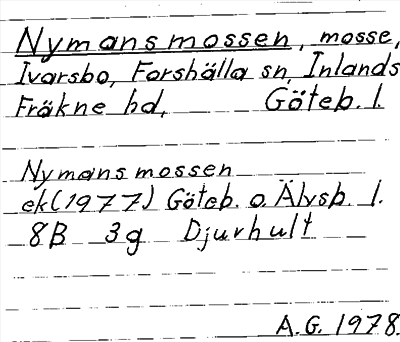 Nymansmossen, mosse,
Ivarsbo, Forshälla sn, Inlands
Fräkne hd, Göteb. l.
Nymansmossen
ek(1977) Göteb. o. Älvsb. l.
8B 3g Djurhult
A.G. 1978.